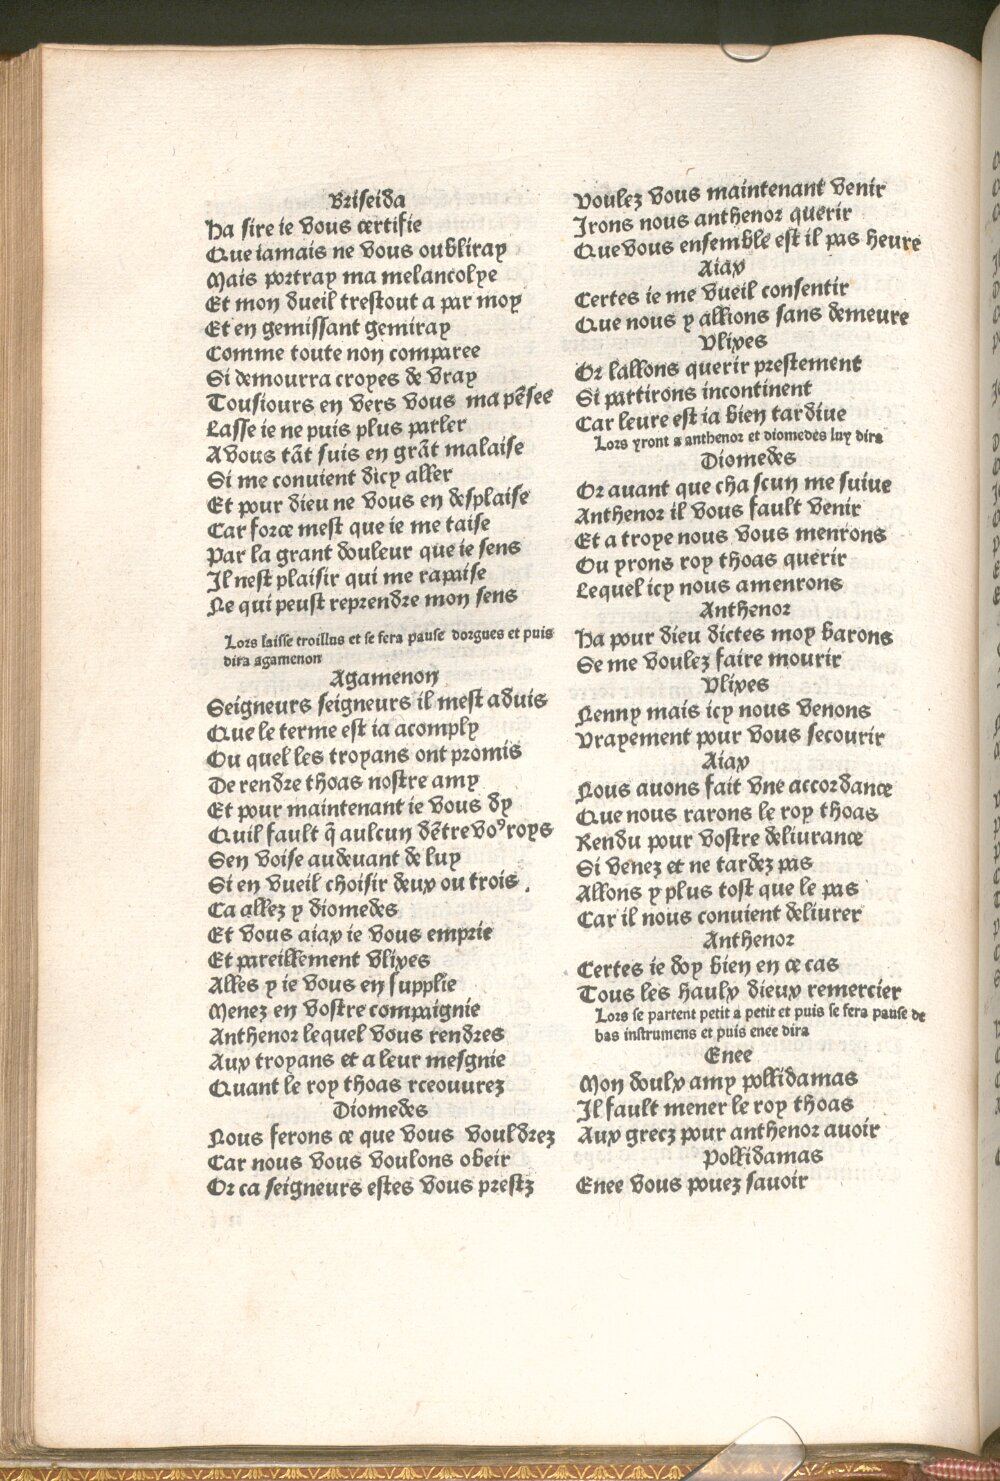 Briseida
Ha sire ie vous certifie
Que iamais ne vous oubliray
Mais portray ma melancolye
Et mon dueil trestout a par moy
Et en gemissant gemiray
Comme toute non comparee
Si demourra croyes de vray
Tousiours en vers vous ma pēsee
Lasse ie ne puis plus parler
A vous tāt suis en grāt malaise
Si me conuient dicy aller
Et pour dieu ne vous en desplaise
Car force mest que ie me taise
Par la grant douleur que ie sens
Il nest plaisir qui me rapaise
Ne qui peust reprendre mon sens
Lors laisse troillus et se fera pause dorgues et puis
dira agamenon
Agamenon
Seigneurs seigneurs il mest aduis
Que le terme est ia acomply
Ou quel les troyans ont promis
De rendre thoas nostre amy
Et pour maintenant ie vous dy
Quil fault q̄ aulcun dētre voꝰ roys
Sen voise au deuant de luy
Si en vueil choisir deux ou trois
Ca allez y diomedes
Et vous aiax ie vous emprie
Et pareillement vlixes
Alles y ie vous en supplie
Menez en vostre compaignie
Anthenor lequel vous rendres
Aux troyans et a leur mesgnie
Quant le roy thoas rceouurez
Diomedes
Nous ferons ce que vous vouldrez
Car nous vous voulons obeir
Or ca seigneurs estes vous prestz
Voulez vous maintenant venir
Irons nous anthenor querir
Que vous ensemble est il pas heure
Aiax
Certes ie me vueil consentir
Que nous y allions sans demeure
Vlixes
Or lallons querir prestement
Si partirons incontinent
Car leure est ia bien tardiue
Lors yront a anthenor et diomedes luy dira
Diomedes
Or auant que chascun me suiue
Anthenor il vous fault venir
Et a troye nous vous menrons
Ou yrons roy thoas querir
Lequel icy nous amenrons
Anthenor
Ha pour dieu dictes moy barons
Se me voulez faire mourir
Vlixes
Nenny mais icy nous venons
Vrayement pour vous secourir
Aiax
Nous auons fait vne accordance
Que nous rarons le roy thoas
Rendu pour vostre deliurance
Si venez et ne tardez pas
Allons y plus tost que le pas
Car il nous conuient deliurer
Anthenor
Certes ie doy bien en ce cas
Tous les haulx dieux remercier
Lors se partent petit a petit et puis se fera pause de
bas instrumens et puis enee dira
Enee
Mon doulx amy pollidamas
Il fault mener le roy thoas
Aux grecz pour anthenor auoir
Pollidamas
Enee vous pouez sauoir